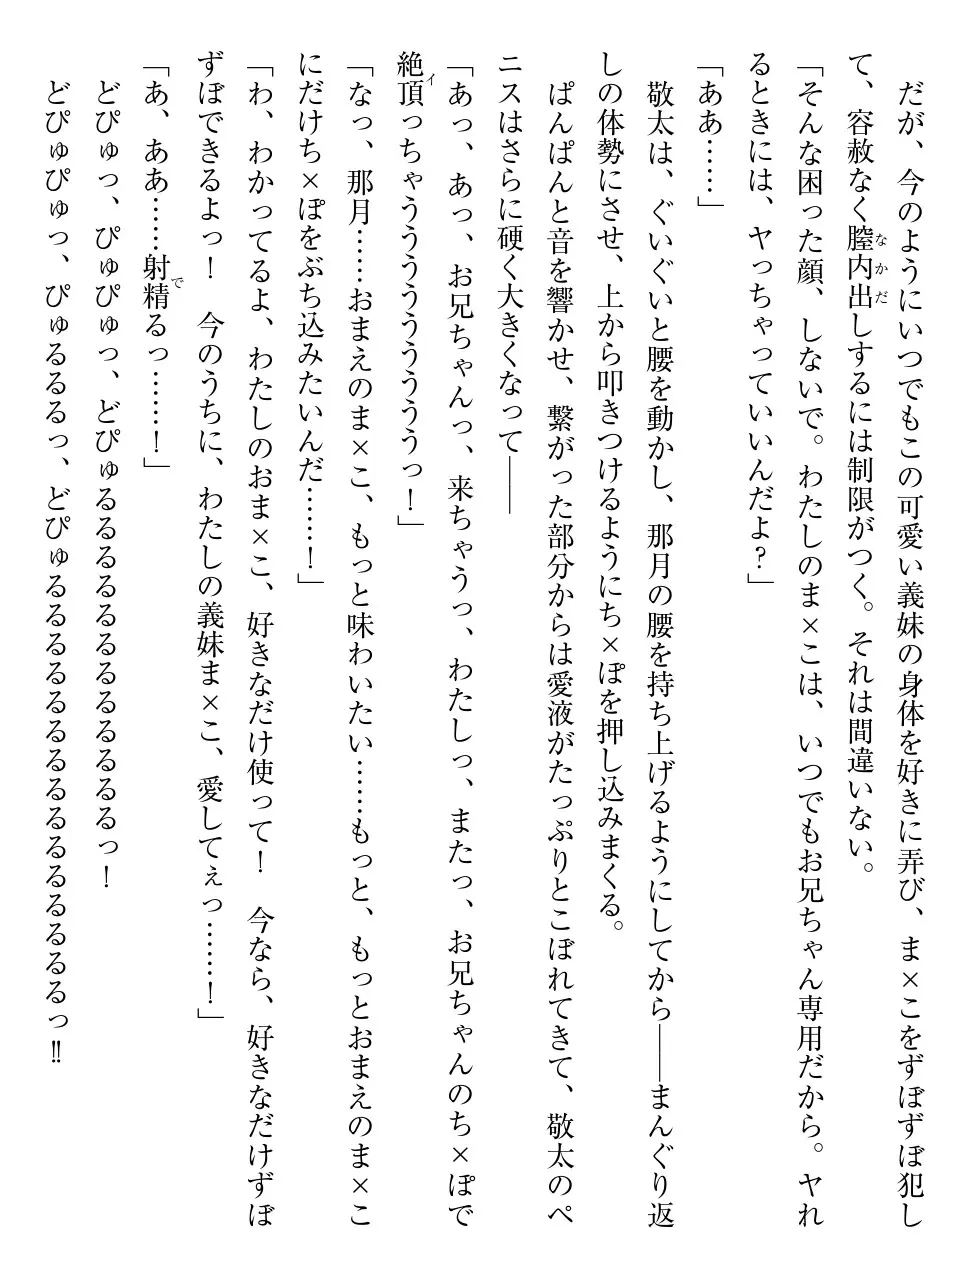 だが、今のようにいつでもこの可愛い義妹の身体を好きに弄び、ま×こをずぼずぼ犯し
て、容赦なく膣内出しするには制限がつく。それは間違いない。
「そんな困った顔、しないで。わたしのま×こは、いつでもお兄ちゃん専用だから。ヤれ
るときには、ヤっちゃっていいんだよ?」
「ああ……」
敬太は、ぐいぐいと腰を動かし、那月の腰を持ち上げるようにしてから――まんぐり返
しの体勢にさせ、上から叩きつけるようにち×ぽを押し込みまくる。
ぱんぱんと音を響かせ、繋がった部分からは愛液がたっぷりとこぼれてきて、敬太のペ
ニスはさらに硬く大きくなって――
「あっ、あっ、お兄ちゃんっ、来ちゃうっ、わたしっ、またっ、お兄ちゃんのち×ぽで
絶頂っちゃうううううううううっ!」
「なっ、那月……おまえのま×こ、もっと味わいたい……もっと、もっとおまえのま×こ
にだけち×ぽをぶち込みたいんだ……!」
「わ、わかってるよ、わたしのおま×こ、好きなだけ使って! 今なら、好きなだけずぼ
ずぼできるよっ! 今のうちに、わたしの義妹ま×こ、愛してぇっ……!」
「あ、ああ……射精るっ……!」
どぴゅっ、ぴゅぴゅっ、どぴゅるるるるるるるるるるるっ!
どぴゅぴゅっ、ぴゅるるるっ、どぴゅるるるるるるるるるるるるるるるっ!!